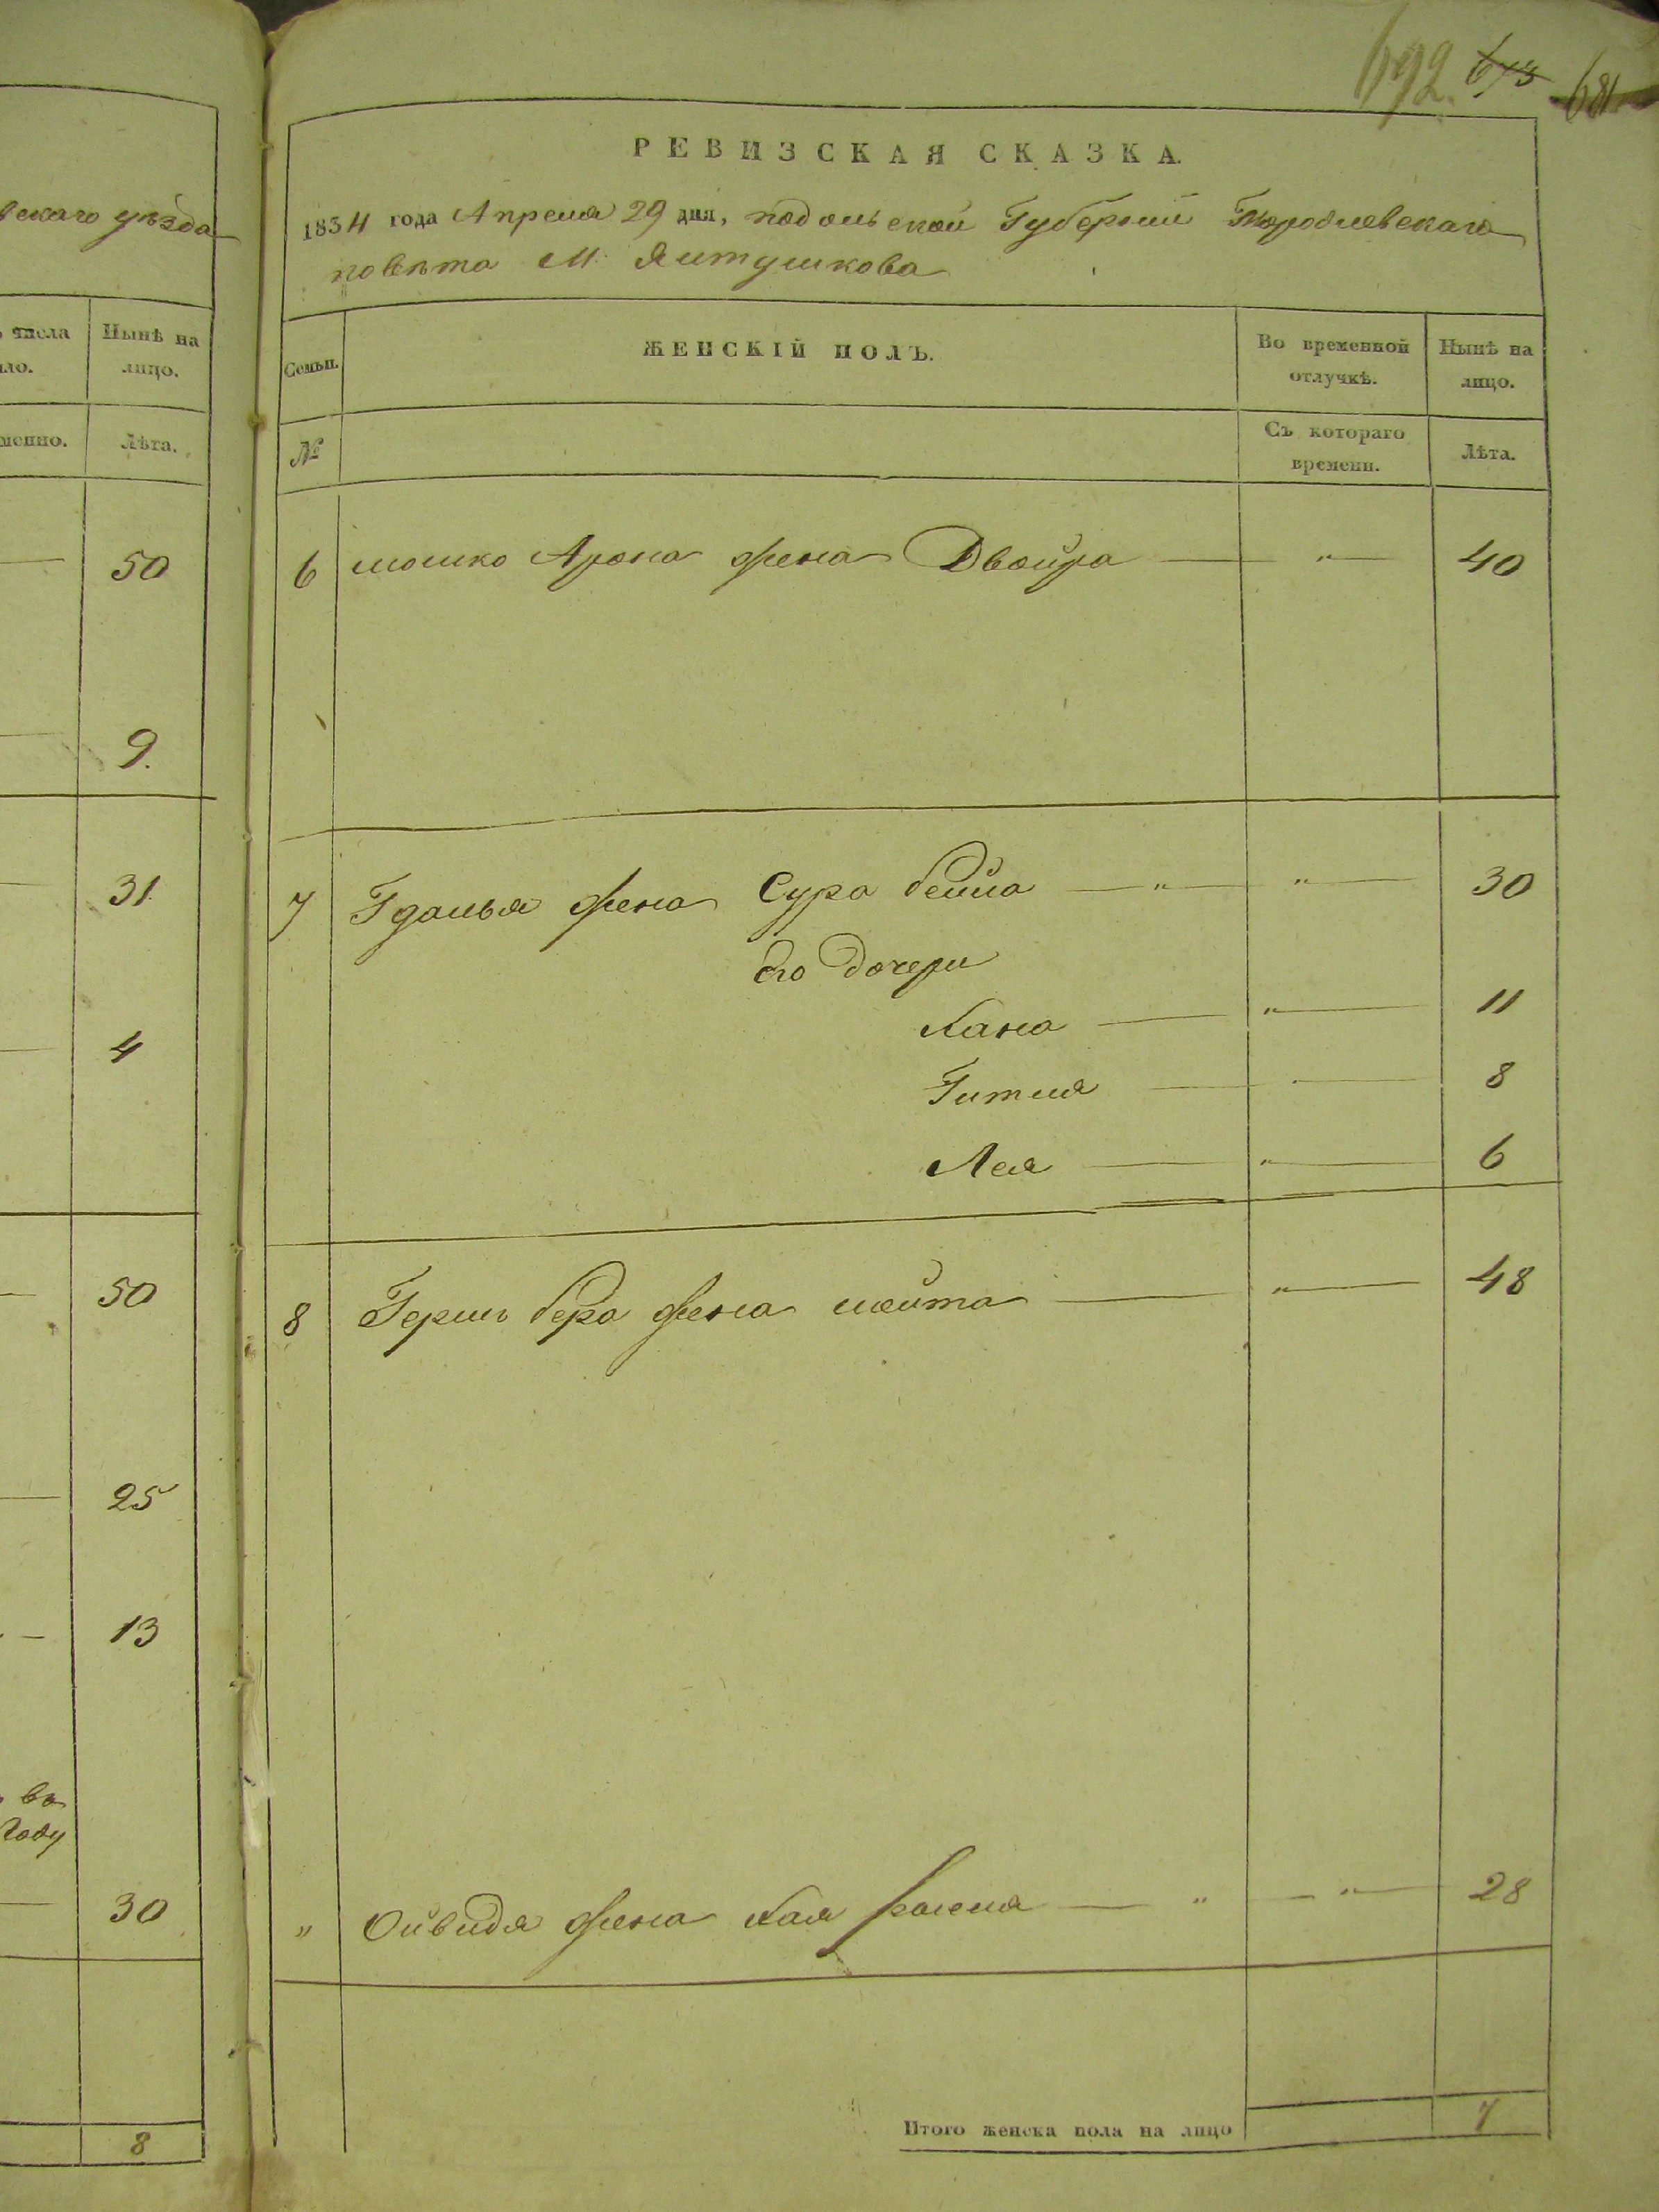 вскаго уѣзда
числа
Нынѣ на
лицо.
Лѣта.
50
9.
31
4
50
25
13
въ
году
30
8
692. 673 681
РЕВИЗСКАЯ СКАЗКА.
1834 года Апреля 29 дня, подольской Губернии
повѣта М. Ялтушкова
Семьи.
ЖЕНСКІЙ ПОЛЪ.
Во временной
отлучкѣ.
Нынѣ на
лицо.
№
Съ котораго
времени.
Лѣта.
6 мошко Арона жена Двойра — " — 40
7 Гдалья жена Сура бейла — " — " — 30
его дочери
Хана — " — 11
Гитля — " — 8
Лея — " — 6
8 Герш бера жена — " — 48
" жена хая — " — " — 28
Итого женска пола на лицо 7